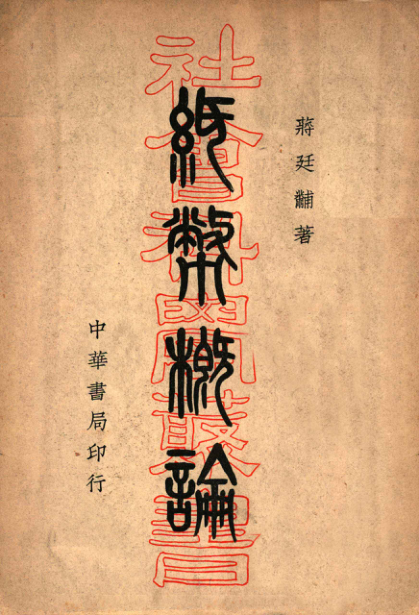 蔣廷黼著
社會科學叢書
紙幣概論
中華書局印行